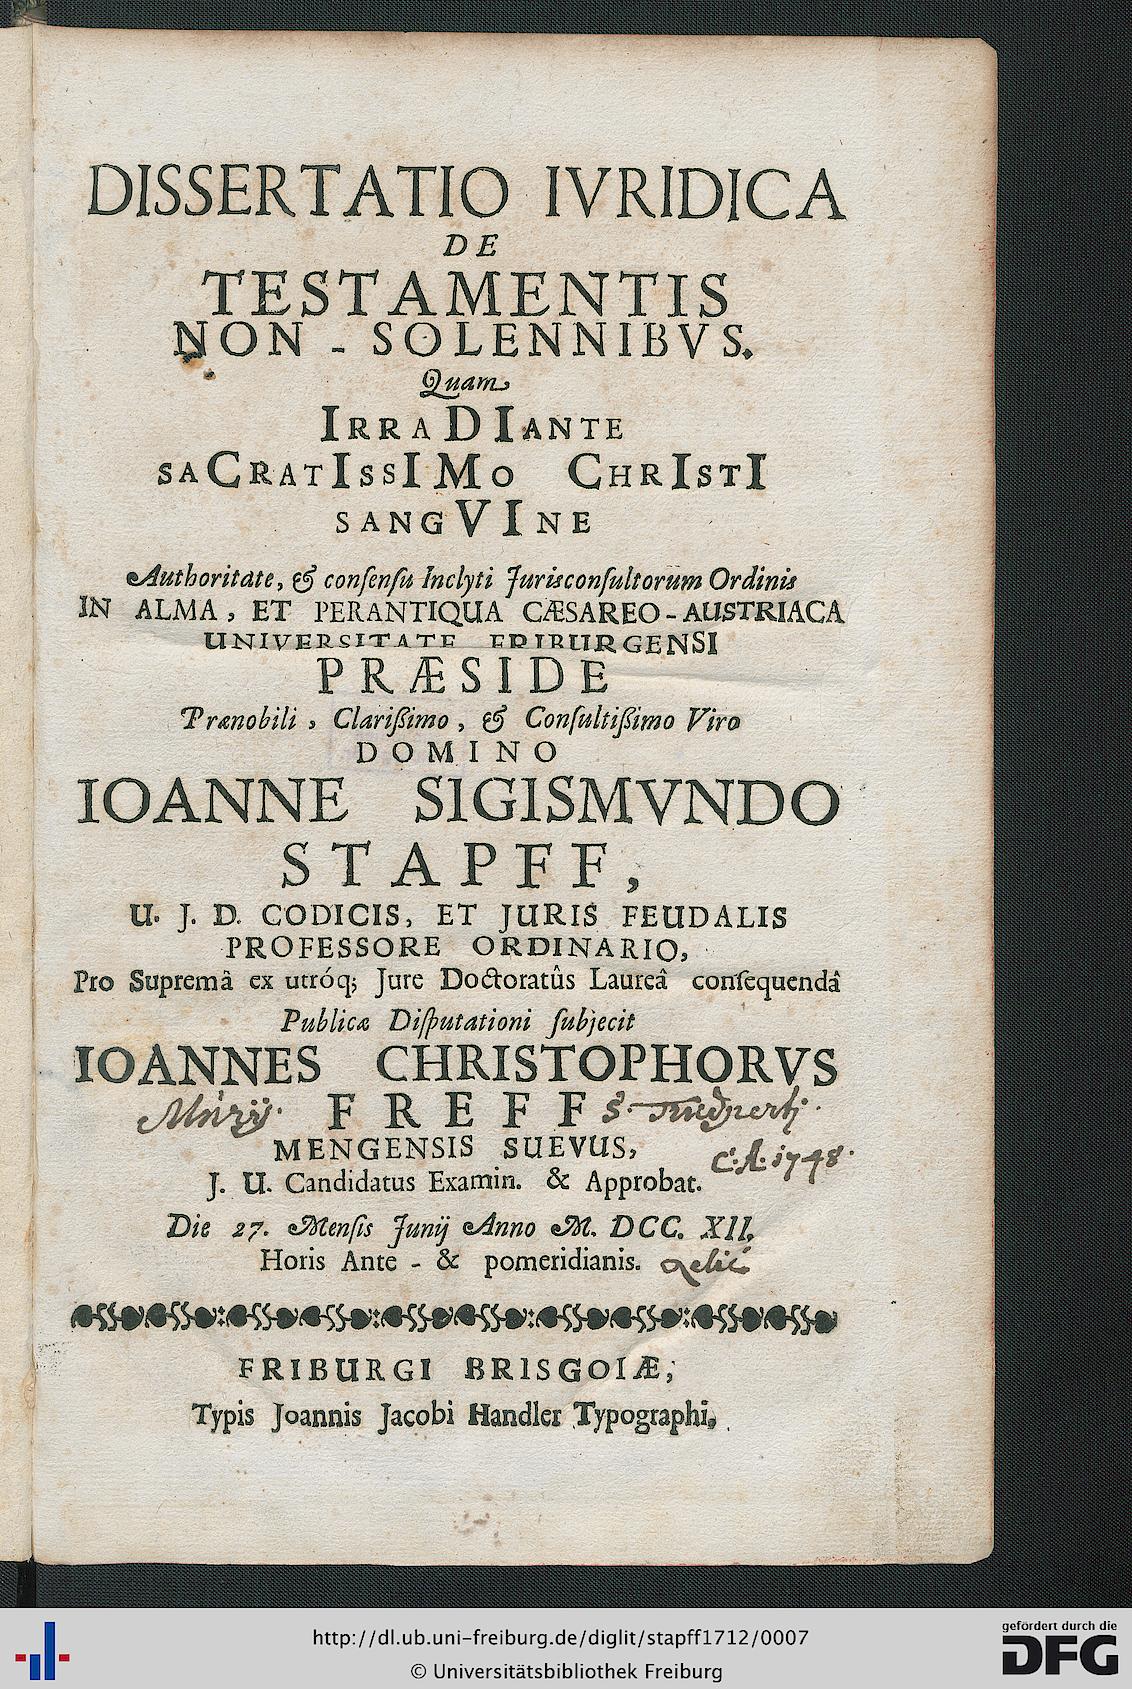 DISSERTATIO IVRIDICA
DE
TESTAMENTIS
NON - SOLENNIBVS.
Quam
IRRADIANTE
SACRATISSIMO CHRISTI
SANGVINE
Authoritate, & conſenſu Inclyti Jurisconſultorum Ordinis
IN ALMA, ET PERANTIQUA CÆSAREO-AUSTRIACA
UNIVERSITATE FRIBURGENSI
PRÆSIDE
Prænobili, Clarißimo, & Conſultißimo Viro
DOMINO
IOANNE SIGISMVNDO
STAPFF,
U. J. D. CODICIS, ET JURIS FEUDALIS
PROFESSORE ORDINARIO,
Pro Supremâ ex utróq; Jure Doctoratûs Laureâ conſequendâ
Publicæ Diſputationi ſubjecit
IOANNES CHRISTOPHORVS
FREFF
MENGENSIS SUEVUS,
C. A. 1748.
J. U. Candidatus Examin. & Approbat.
Die 27. Menſis Junij Anno M. DCC. XII.
Horis Ante - & pomeridianis.
FRIBURGI BRISGOIÆ,
Typis Joannis Jacobi Handler Typographi.
http://dl.ub.uni-freiburg.de/diglit/stapff1712/0007
© Universitätsbibliothek Freiburg
gefördert durch die
DFG